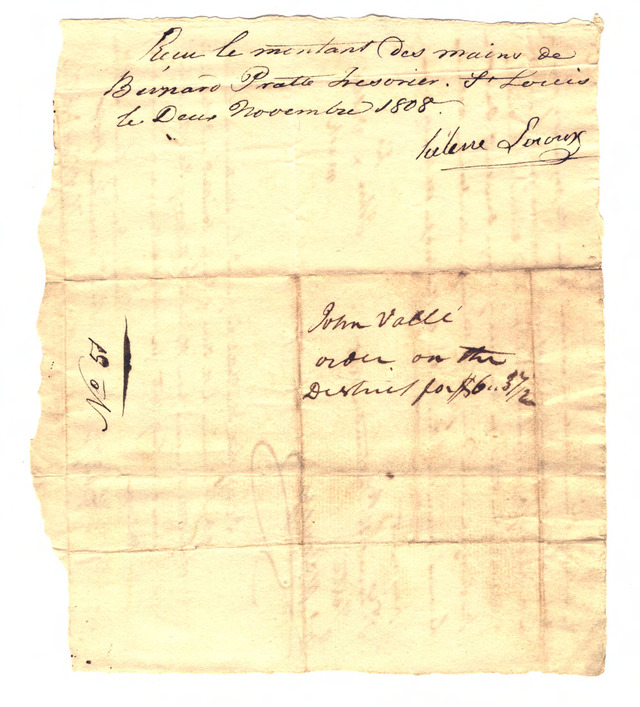 Recu le montant des mains de
Bernard Pratte tresorier. St Louis
le Deux Novembre 1808.
hélene Leroux
No 51
John Vallé
order on the
District for $6..37/2